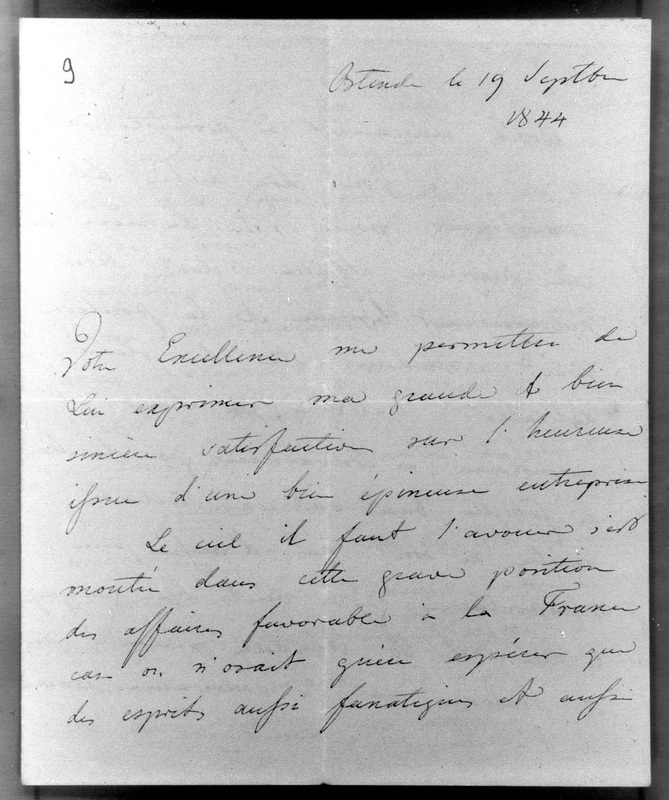 9
Ostende le 19 Septbre
1844
Votre Excellence me permettra de
Lui exprimer ma grande et bien
sincère satisfaction sur l'heureuse
issue d'une bien épineuse entreprise
Le ciel il faut l'avouer s'est
montré dans cette grave position
des affaires favorable à la France
car on n'osait guère espérer que
des esprits aussi fanatiques et aussi